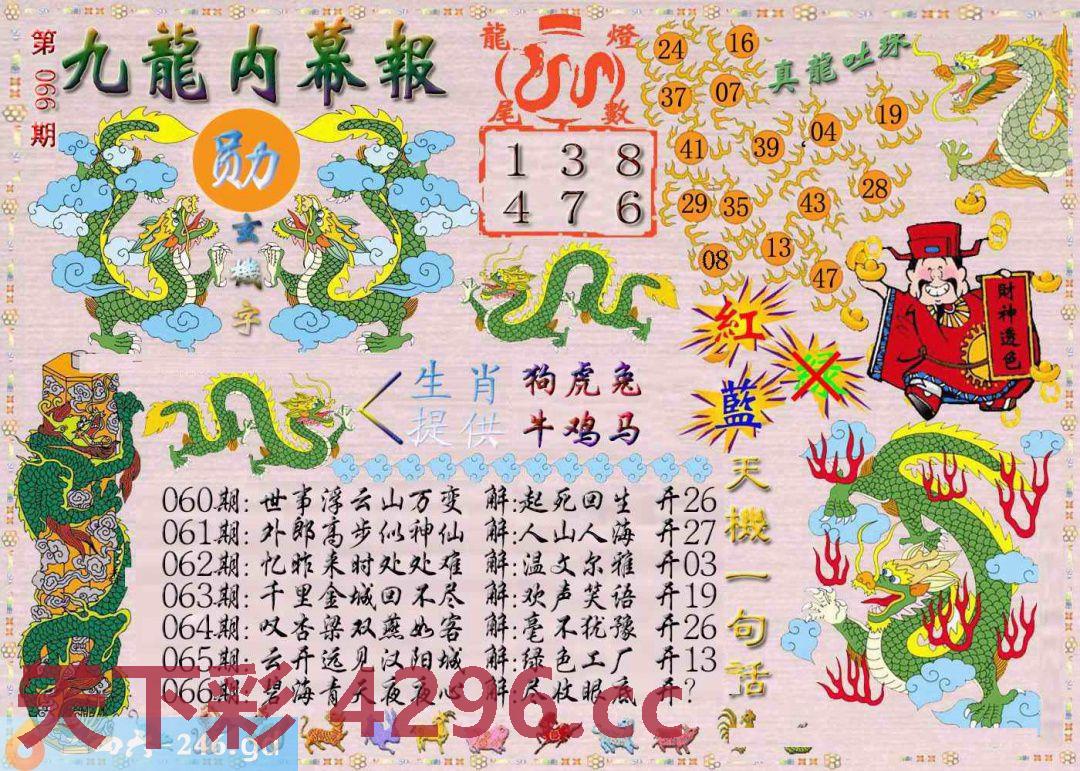 第066期
九龍内幕報
勋
玄機字
龍燈
尾數
1 3 8
4 7 6
真龍吐珠
24 16
37 07
41 39 04 19
29 35 43 28
08 13 47
紅
藍
绿
財神透色
生肖提供
狗虎兔
牛鸡马
天機一句話
060期: 世事浮云山万变 解:起死回生 开26
061期: 外郎高步似神仙 解:人山人海 开27
062期: 忆昨来时处处难 解:温文尔雅 开03
063期: 千里金城回不尽 解:欢声笑语 开19
064期: 叹杏梁双燕如客 解:毫不犹豫 开26
065期: 云开远见汉阳城 解:绿色工厂 开13
066期: 碧海青天夜夜心 解:尽收眼底 开?
天下彩 4296.cc
=246.gd